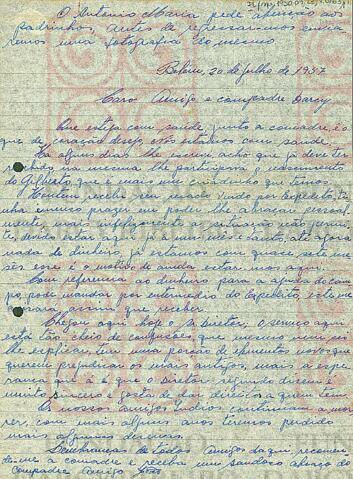 O Antonio Maria pede abenção aos
padrinhos, antes de regressarmos envia
remos uma fotografia do mesmo
Belem, 20 de julho de 1957
Caro Amigo e compadre Darcy
Que esteja com saude junto a comadre, é o
que de coração desejo nós estamos com saude.
Ha alguns dias lhe escrevi acho que já deve ter
recebido na mesma lhe participava o nascimento
do Gilberto que é mais um criadinho que temos.
Hontem recebi seu recado vindo por Expedito, ti
nha imenso prazer em poder lhe abraçar pessoal
mente, mais infelizmente a situação não permi
te, devido estar aqui já a um mês e tanto, até agora
nada de dinheiro já estamos com quase sete me
ses esse é o motivo de ainda estar nos aqui.
Com referencia ao dinheiro para a ajuda do cam
po, pode mandar por intermedio do Expedito, este me
assim que receber.
Chegou aqui hoje o Sr Diretor, o serviço aqui
está tão cheio de confusões que mesmo nem sei
lhe explicar, tem uma porção de elementos novos que
querem prejudicar os mais antigos, mais a espe
rança que á é que o Diretor segundo dizem é
muito sincero e gosta de dar direito a quem tem.
Os nossos amigos Indios continuam a mor
rer, com mais alguns anos teremos perdido
mais algumas dezenas.
Lembranças de todos Amigos daqui recomen
de-me a comadre e receba um saudoso abraço do
compadre Amigo João